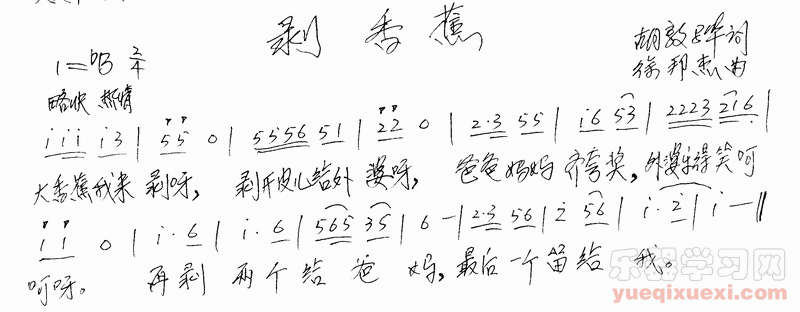 剥香蕉
胡敦骅词
1=♭B 2/4
徐邦杰曲
略快 热情
i i i i 3 | 5 5 0 | 5 5 5 6 5 1 | 2 2 0 | 2·3 5 5 | i 6 5 3 | 2 2 2 3 2 1 6 |
大香蕉我来剥呀，剥开皮儿给外婆呀，爸爸妈妈齐夸奖，外婆乐得笑呵
i i 0 | i·6 | i·6 | 5 6 5 3 5 | 6 — | 2·3 5 6 | 2 5 6 | i·2 | i — ‖
呵呀。再剥两个给爸妈，最后一个留给我。
乐器学习网
yueqixuexi.com